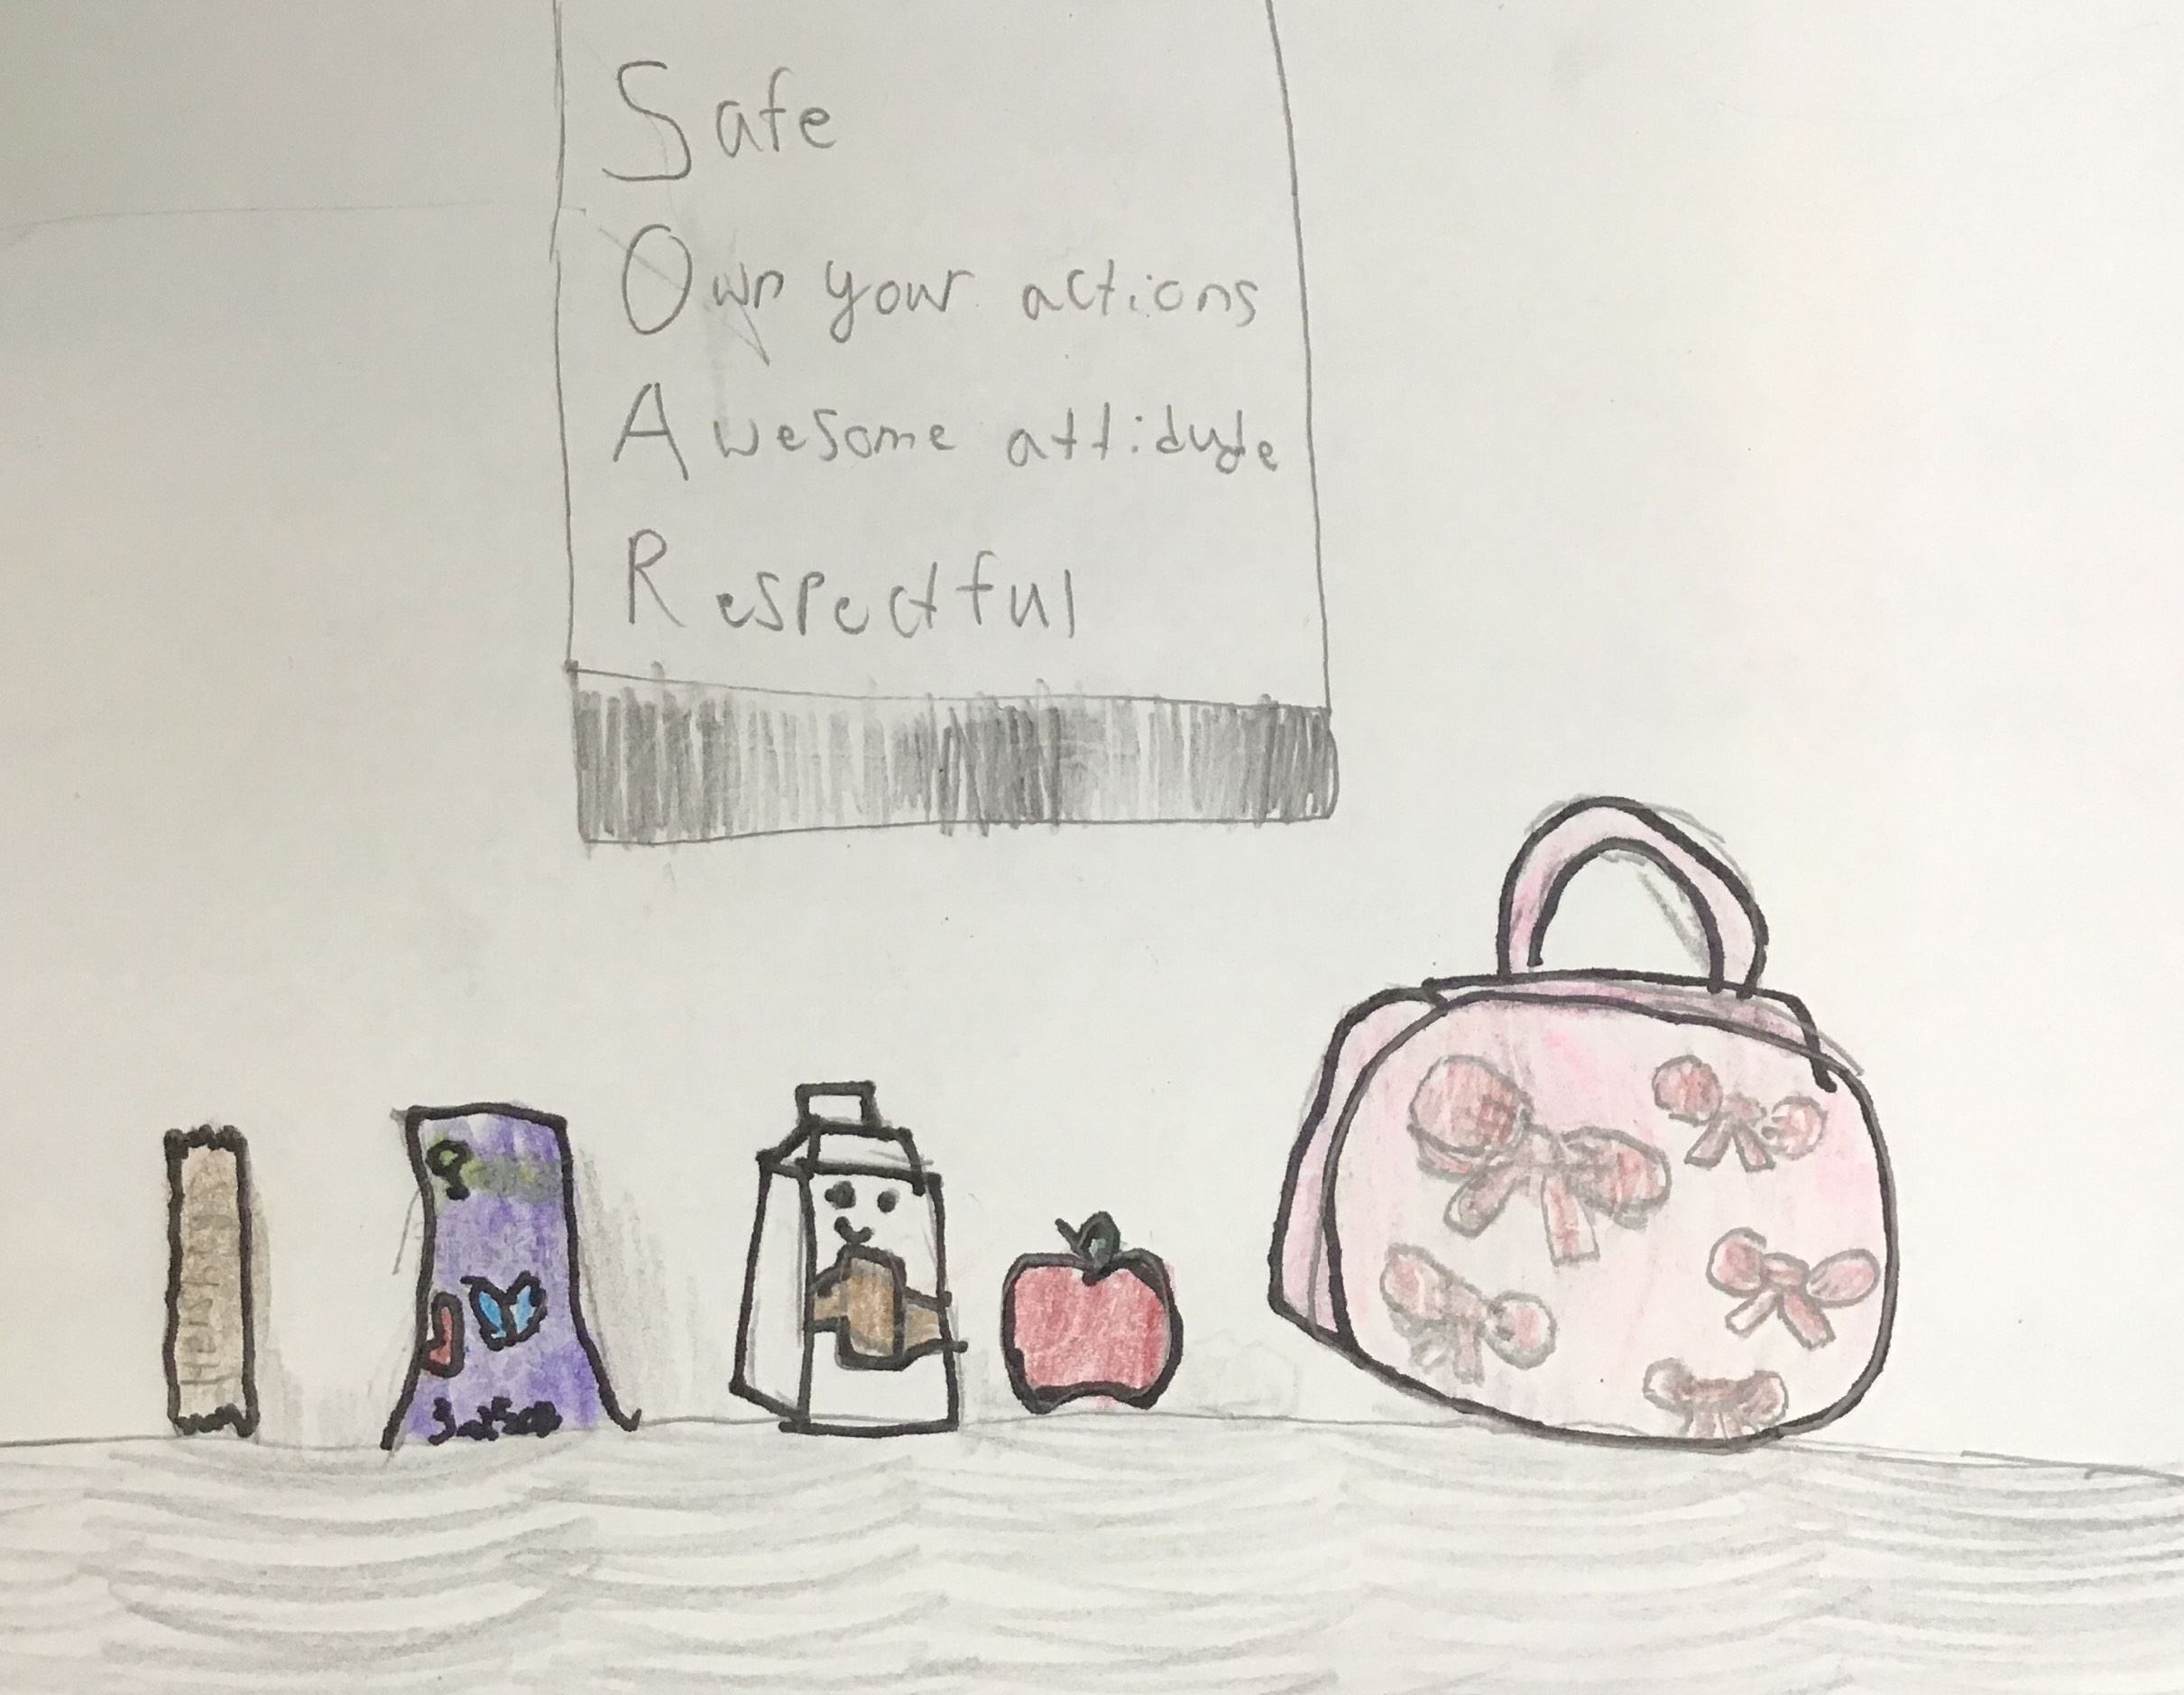 Safe
Own your actions
Awesome attidude
Respectful
Hersheys